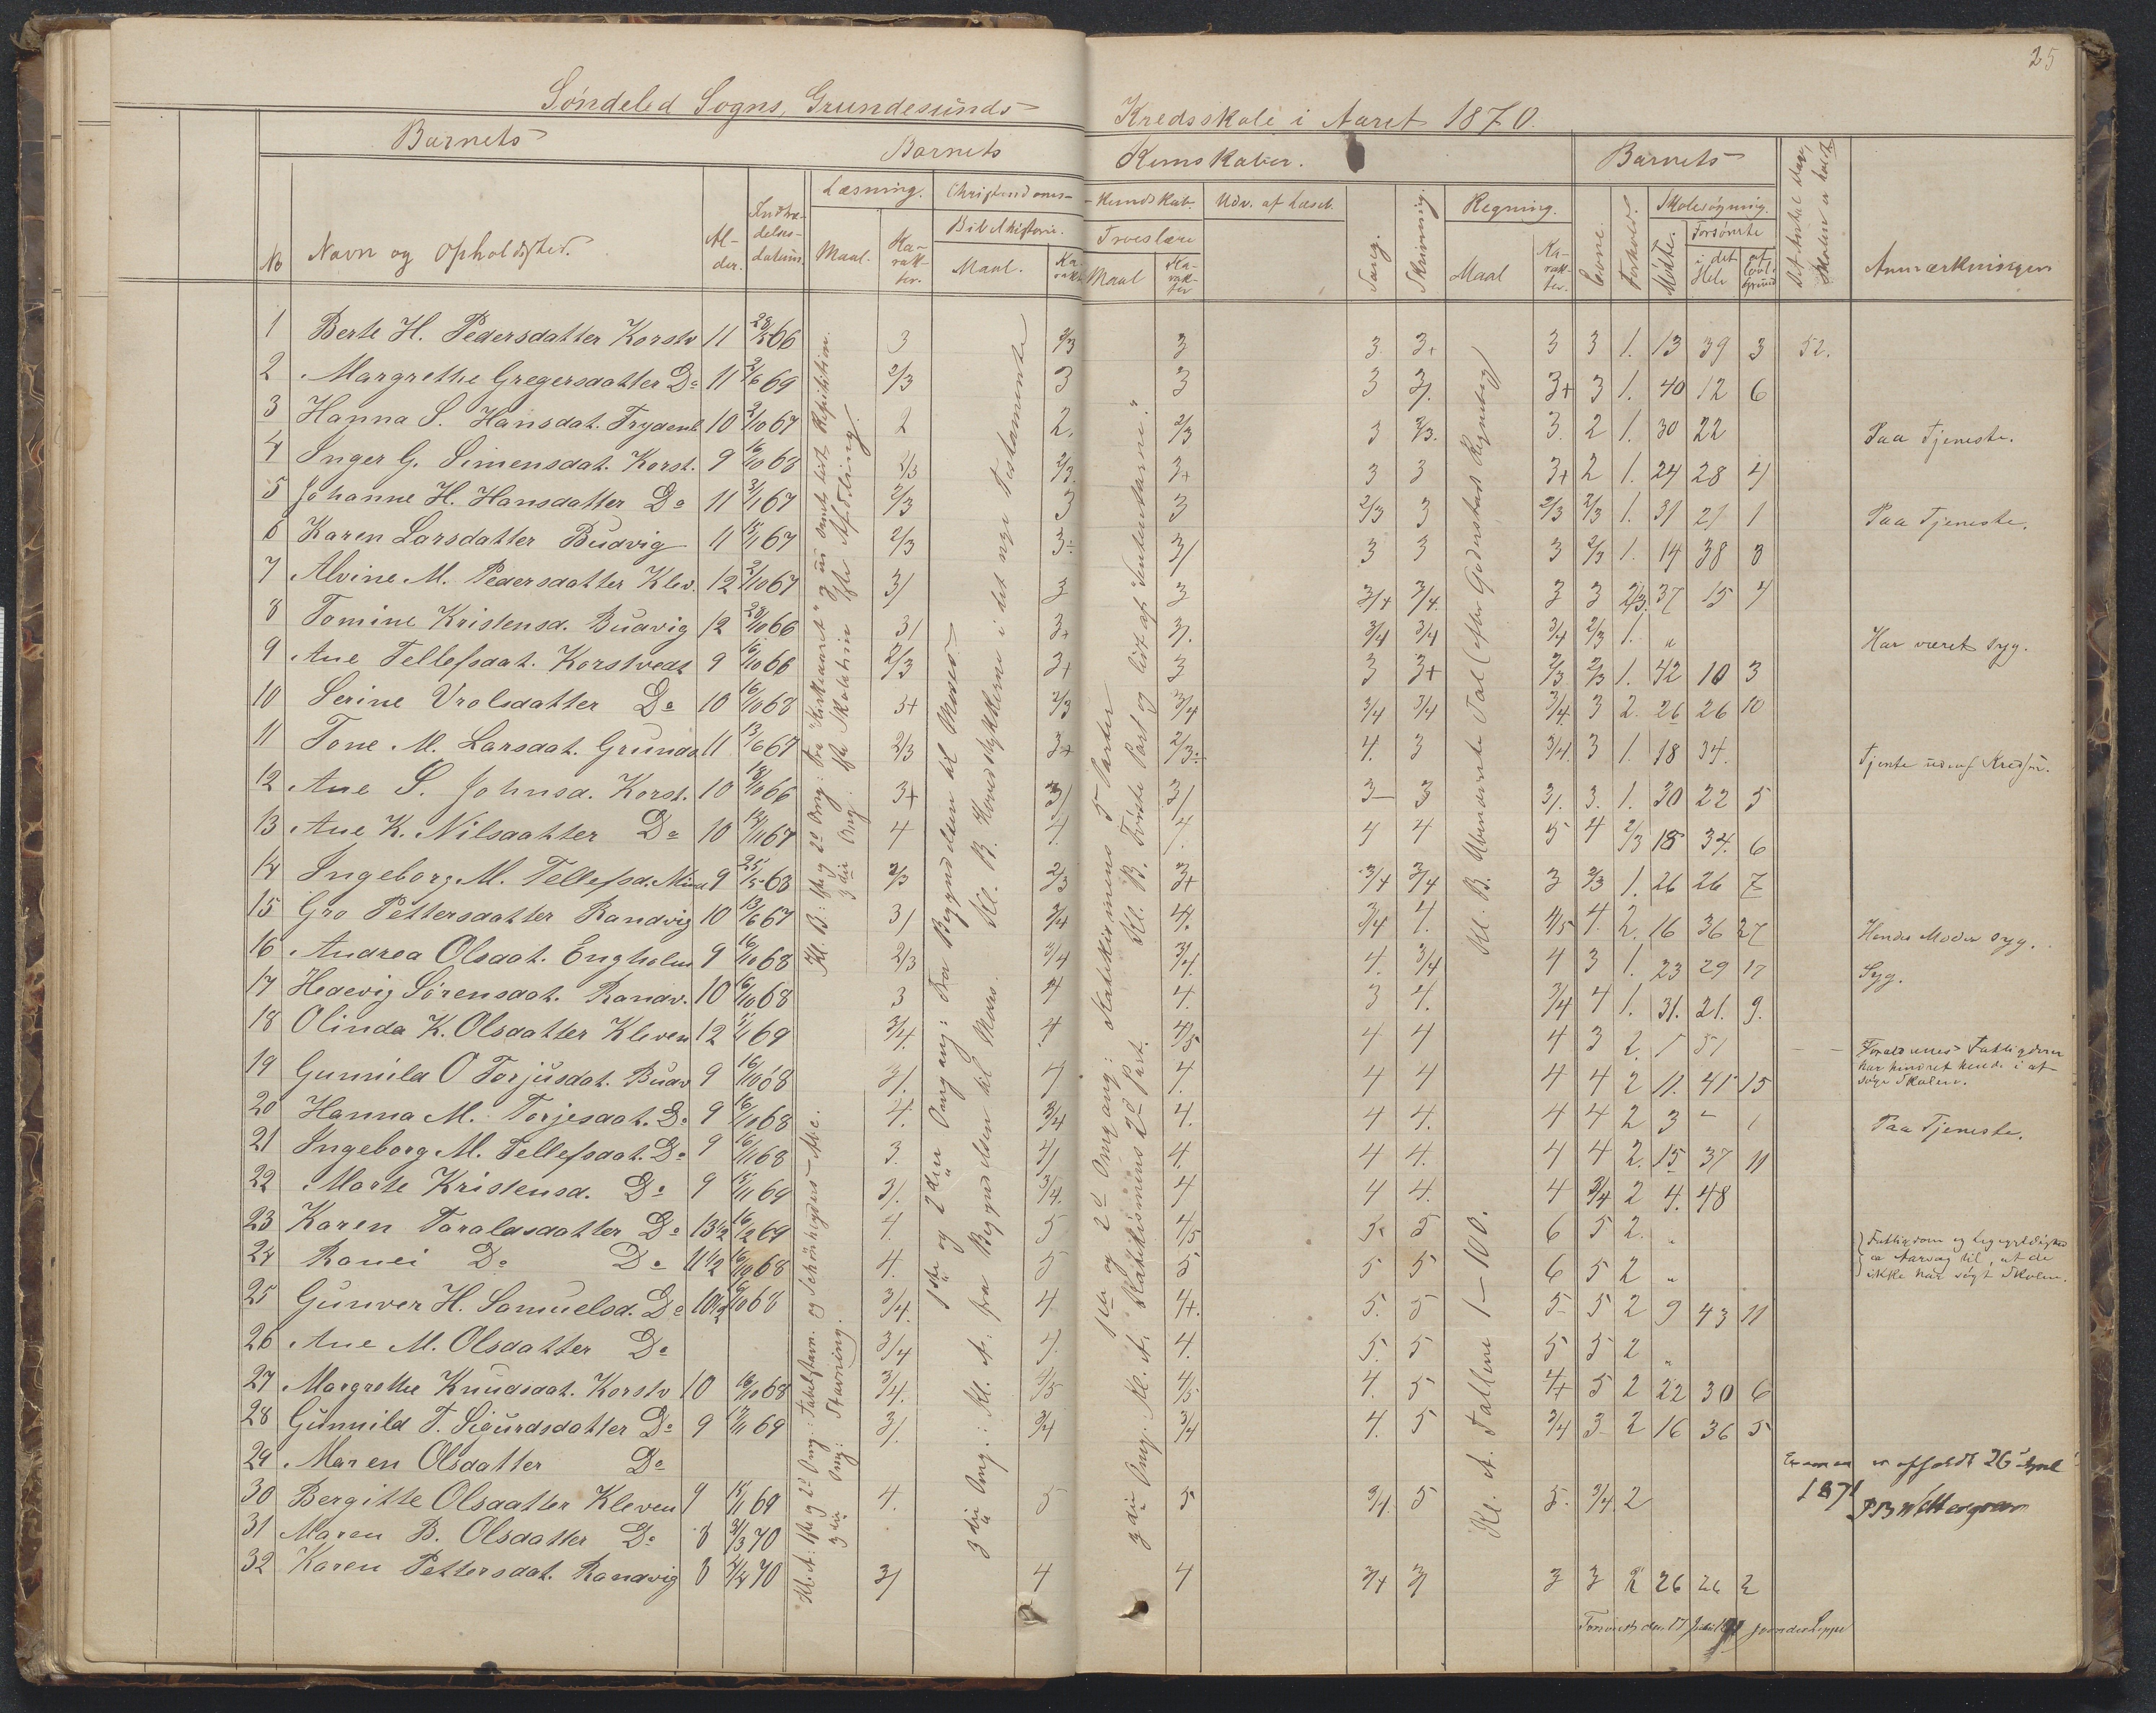 25
Søndeled Sogns, Grundesunds Kredsskole i Aaret 1870.
Barnets Barnets Kundskaber. Barnets
No Navn og Opholdssted. Al-der. Indtræ-delses-datum. Læsning. Maal. Ka-rak-ter. Christendoms-Kundskab. Bibelhistorie. Maal. Ka-rakt. Troeslære Maal Ka-rak-ter Udv. af Læseb. Sang. Skrivning Regning. Maal Ka-rak-ter. Evne. Forhold. Skolesøgning. Mødte. Forsømte i det Hele af lovl. Grund Det Antal Dage, Skolen er holdt Anmærkninger
Kl. B: 1ste og 2d Omg: Fra "Kirkeaaret"
3die Omg:
1ste og 2den Omgang: Fra Begyndelsen til Moses
Kl. B. Hovedstykkerne i det nye Testamente
1ste og 2d Omgang: Katekismens 5 Parter
Kl. B. Første Part og lidt af "Sententiarne".
Kl. B. Ubenævnte Tal (efter Guldestads Regnebog)
1 Berte H. Pedersdatter Korstv 11 66 3 2/3 3 3 3+ 3 3 1. 13 39 3 52.
2 Margrethe Gregersdatter Do 11 2/6 69 2/3 3 3 3 3/. 3+ 3 1. 40 12 6
3 Hanna S. Hansdat. Frydenl 10 2/10 67 2 2. 2/3 3 2/3. 3. 2 1. 30 22 Paa Tjeneste.
4 Inger G. Simensdat. Korst. 9 16/10 68 2/3 2/3 3+ 3 3 3+ 2 1. 24 28 4
5 Johanne H. Hansdatter Do 11 67 2/3 3 3 2/3 3 2/3 2/3 1. 31 21 1 Paa Tjeneste.
6 Karen Larsdatter Budvig 11 67 2/3 3÷ 3/ 3 3 3 2/3 1. 14 38 8
7 Alvine M. Pedersdatter Klev. 12 2/10 67 3/ 3 3 3/4 3/4. 3 3 2/3. 37 15 4
8 Tomine Kristensd. Budvig 12 66 3/ 3+ 3/. 3/4 3/4 3/4 2/3 1. „ Har været syg.
9 Ane Tellefsdat. Korstvedt 9 66 2/3 3+ 3 3 3+ 2/3 2/3 1. 42 10 3
10 Serine Vrolsdatter Do 10 16/10 68 3+ 2/3 3/4 3/4 3/4 3/4. 3 2. 26 26 10
11 Tone M. Larsdat. Grunds 11 13/6 67 2/3 3+ 2/3÷ 4. 3 3/4. 3 1. 18 34. Tjente udenf Kredsen.
12 Ane S. Johnsd. Korst. 10 66 3+ 3/ 3/ 3– 3 3/. 3. 1. 30 22 5
13 Ane K. Nilsdatter Do 10 67 4 4. 4. 4 4 5 4 2/3 18 34. 6
14 Ingeborg M. Tellefsd. 9 68 2/3 2/3 3+ 3/4 3/4 3 2/3 1. 26 26 7
15 Gro Pettersdatter Randvig 10 13/6 67 3/ 3/4 4. 3/4 4. 4/5 4. 2. 16 36 27 Hendes Moder syg.
16 Andrea Olsdat. Engholm 9 16/10 68 2/3 3/4 3/4. 4. 3/4 4 3 1. 23 29 17 Syg.
17 Hedevig Sørensdat. Randv. 10 16/10 68 3 4 4. 3 4. 3/4 4 1. 31. 21. 9.
18 Olinda K. Olsdatter Kleven 12 69 3/4. 4 4/5 4 4 4 3 2. 1 51
19 Gunnild O Torjusdat. Budv 9 68 3/. 4 4. 4 4 4 4 2 11. 41 15 Forældrenes Fattigdom har hindret hende i at søge Skolen.
20 Hanna M. Torjesdat. Do 9 68 4. 3/4 4. 4 4. 4 4 2 3 – 1 Paa Tjeneste.
21 Ingeborg M. Tellefsdat. Do 9 16/11 68 3. 4/ 4. 4 4. 4 4 2. 15 37 11
22 Marte Kristensd. Do 9 69 3/. 3/4. 4 4 4. 4 3/4 2 4. 48
23 Karen Taraldsdatter Do 13 1/2 69 4. 5 4/5 5 5 6 5 2. „
24 Ronei Do Do 11 1/2 16/10 68 4. 5 5 5 5 6 5 2 „ Fattigdom og ligegyldighed er Aarsag til, at de ikke har søgt Skolen.
25 Gunver H. Samuelsd. Do 10 1/2 68 3/4. 4 4+. 5. 5 5 5 2 9 43 11
26 Ane M. Olsdatter Do 3/4 4. 4. 5. 5 5 5 2 „
27 Margrethe Knudsdat. Korstv 10 68 3/4. 4/5 4/5 4. 5 4+ 5 2 22 30 6
28 Gunnild T. Sigurdsdatter Do 9 69 3/. 3/4 3/4 4. 5 3/4 3 2 16 36 5
29 Maren Olsdatter Do
30 Bergitte Olsdatter Kleven 9 69 4. 5 5 3/4. 5 5. 3/4. 2
31 Maren B. Olsdatter Do 8 70
32 Karen Pettersdat. Randvig 8 70 3/ 4 4 3/4 3/ 3 3 2 26 26 2
Kl. A: 1ste og 2d Omg.: og Schønhyders Abc.
3die Omg: Stavning.
3die Omg.: Kl. A: fra Begyndelsen til Moses.
3die Omg.: Kl. A. Katekismens 2d Part.
Kl. A. Tallene 1–100.
Examen er afholdt 26
1871